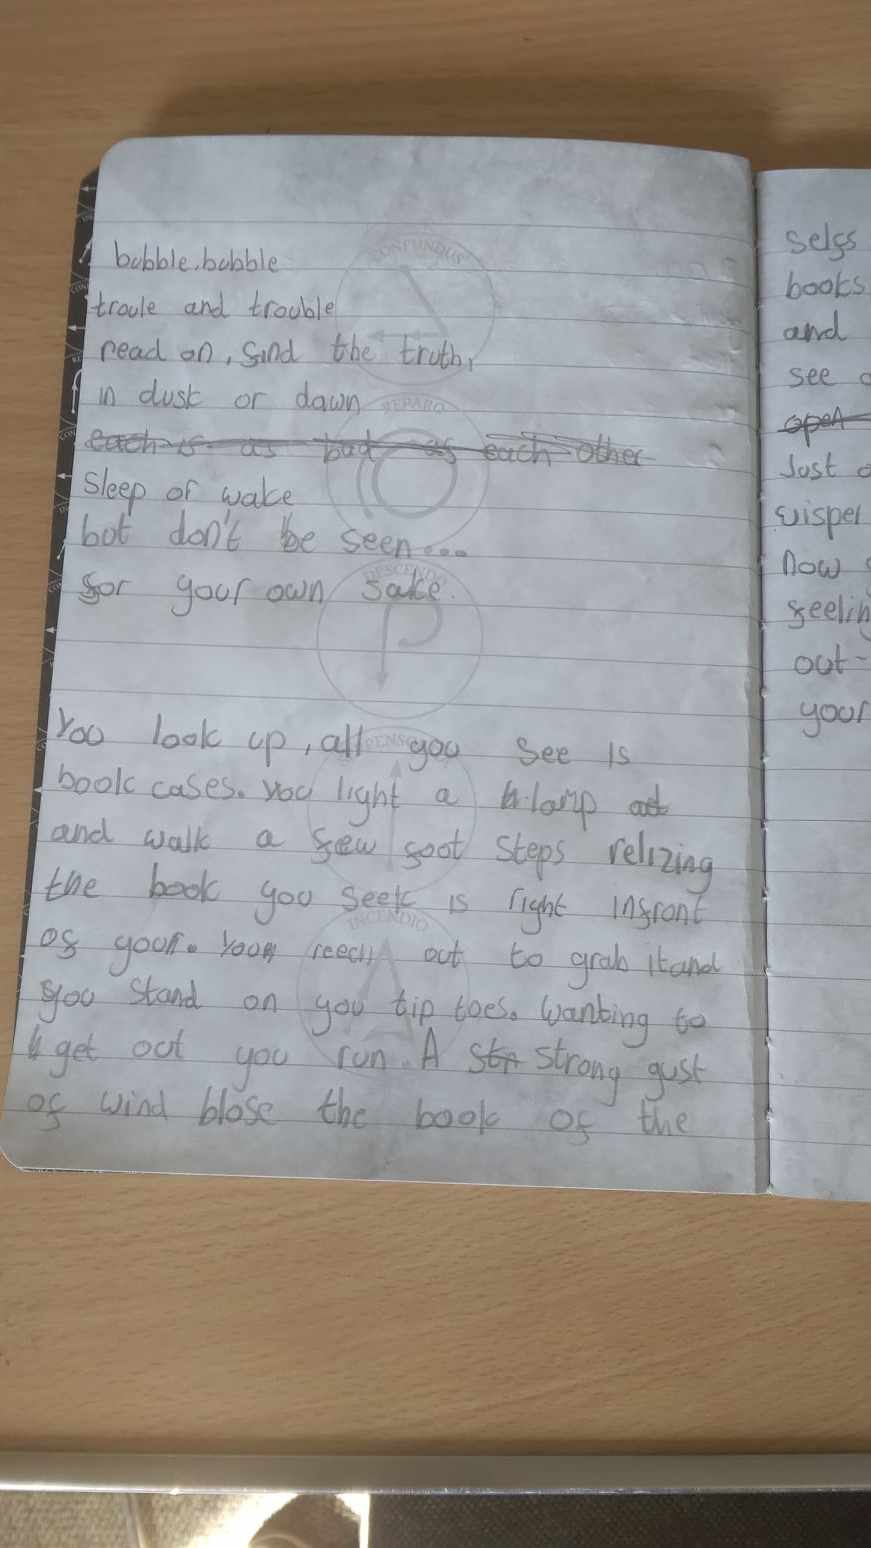 bubble.bubble
troule and trouble
read on, find the truth,
in dusk or dawn
each is as bad as each other
sleep or wake
but don't be seen...
for your own sake.
You look up, all you see is
book cases. You light a lamp
and walk a few foot steps relizing
the book you seek is right infront
of your. You reech out to grab it and
you stand on you tip toes. Wanting to
get out you run. A str strong gust
of wind blose the book of the
selfs
books
and
see
open
Just
wisper
now
feelin
out-
your
CONFUNDUS
REPARO
DESCENDO
INCENDIO